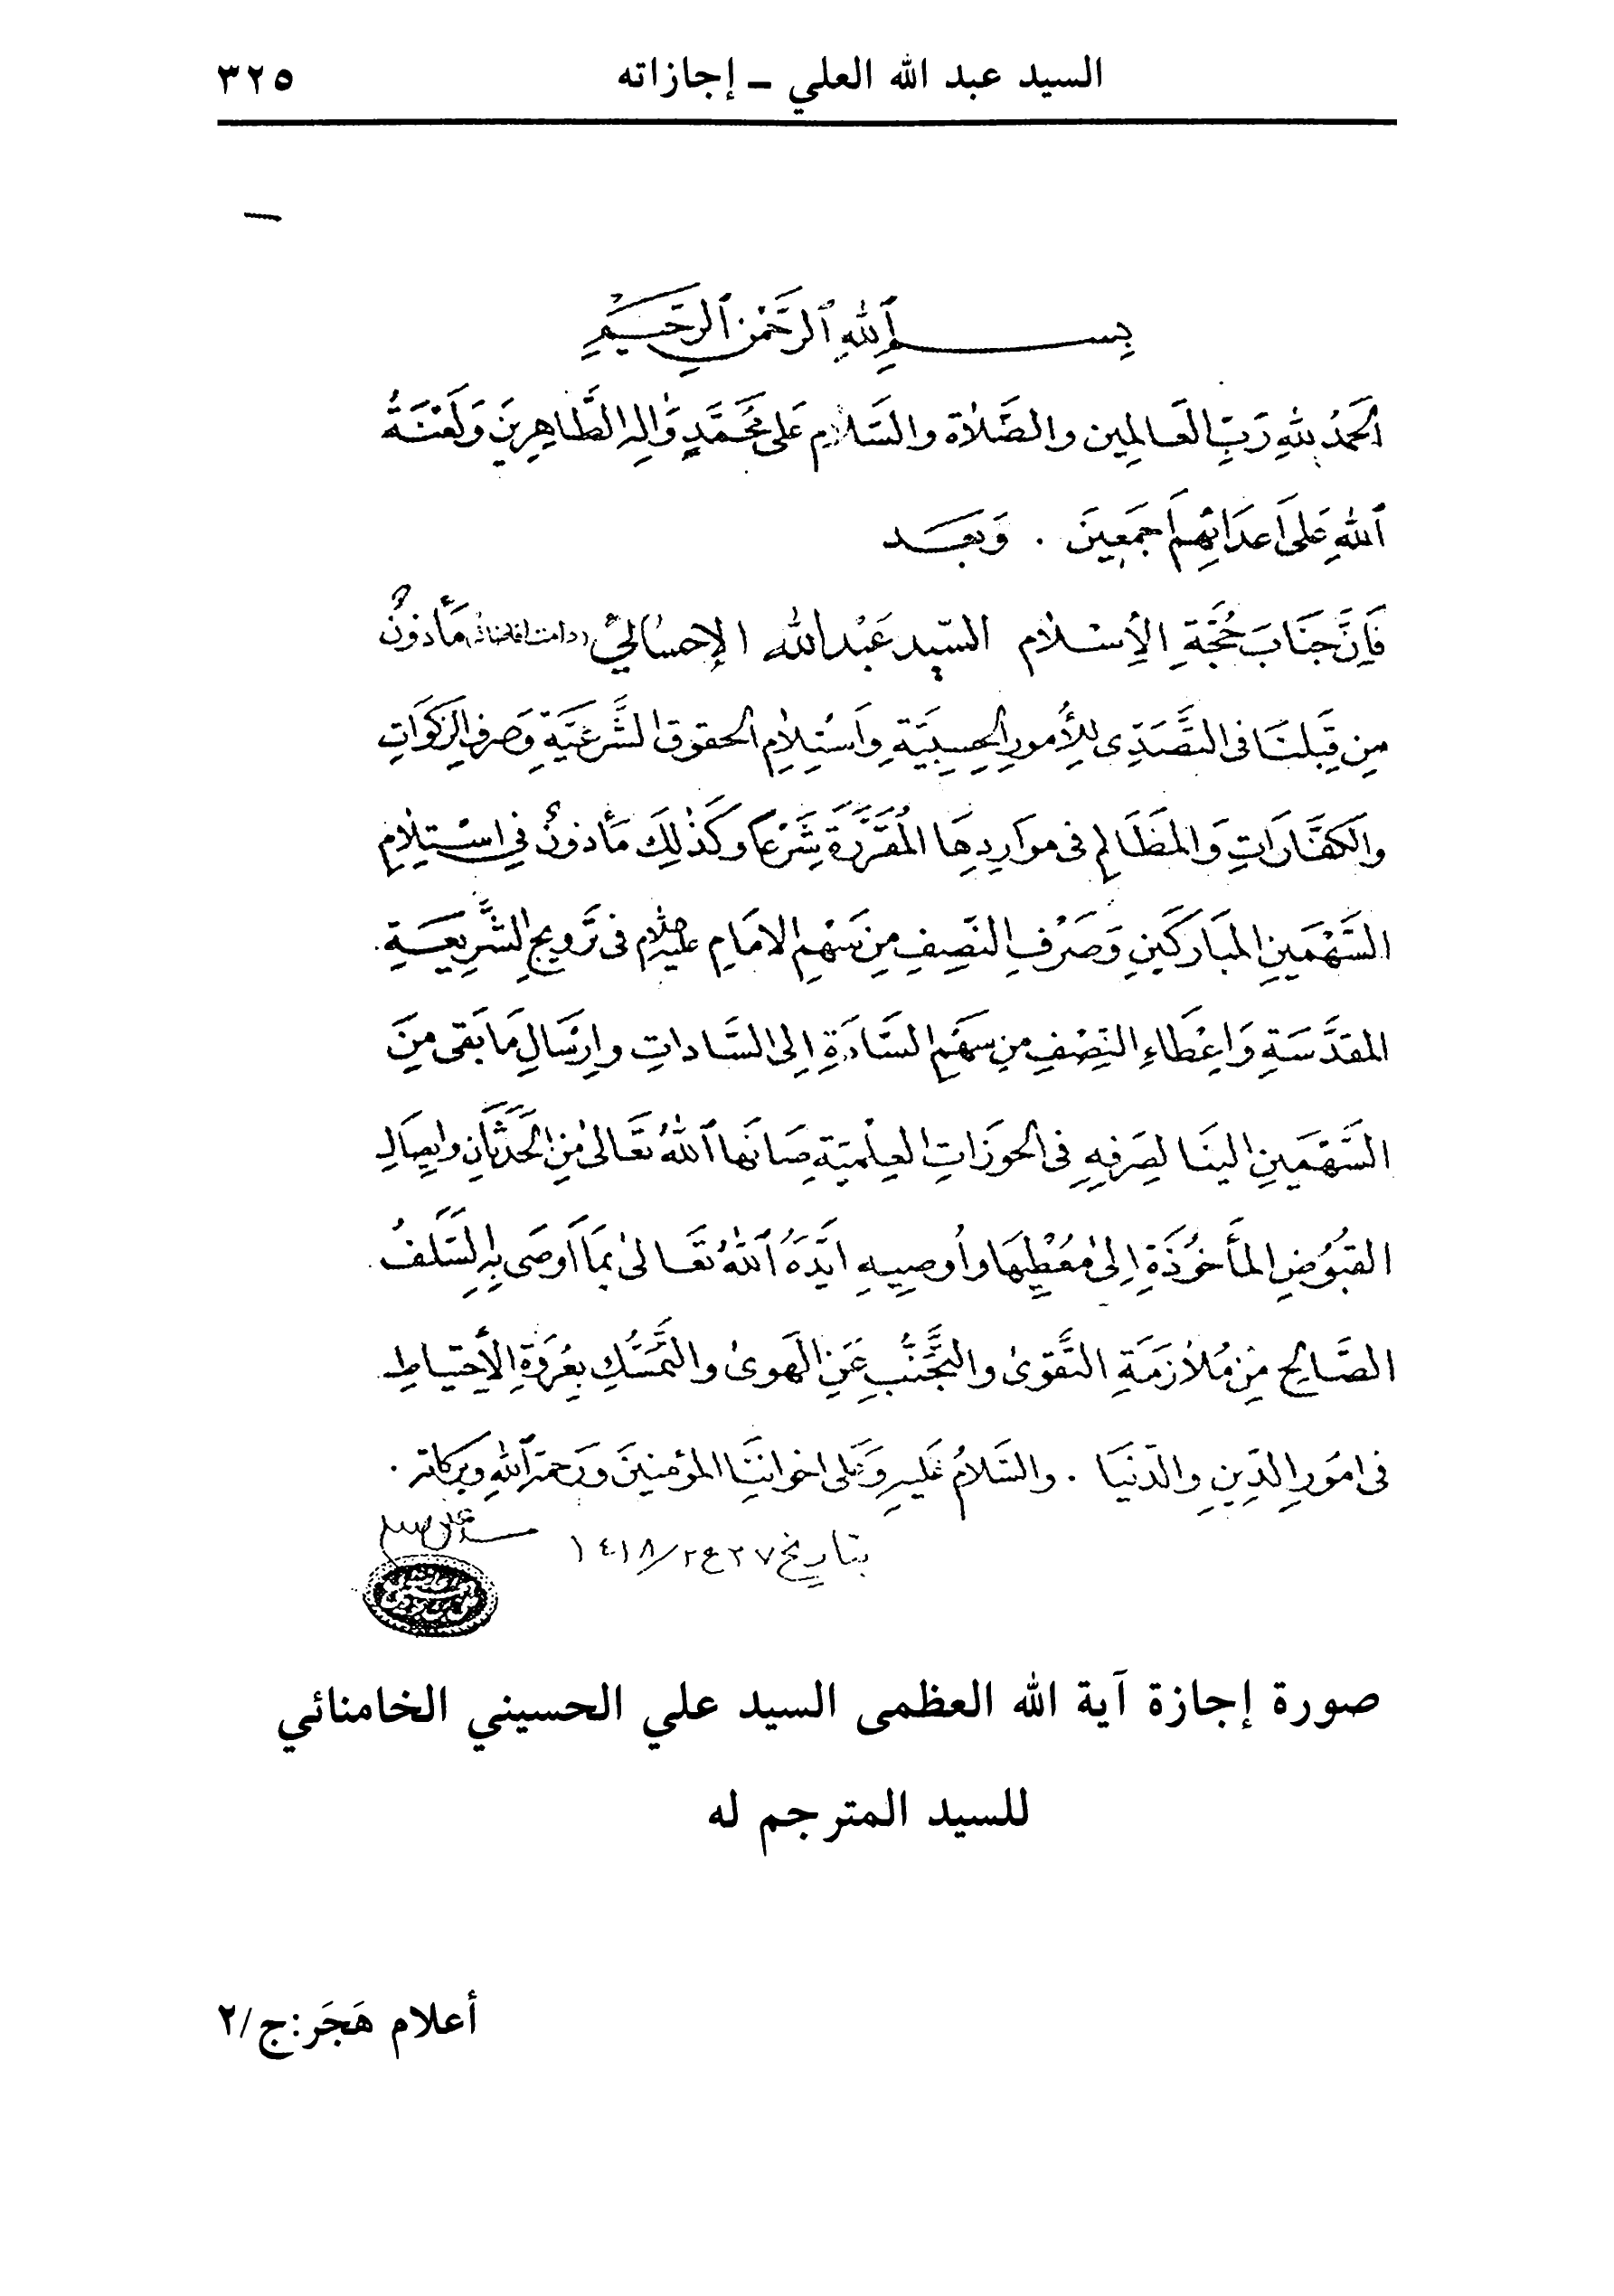 السيد عبد الله العلي ـ إجازاته ٣٢٥
بِسمِ ٱللهِ ٱلرَّحْمٰنِ ٱلرَّحَيمِ
اَلحَمدُ لِلّٰهِ رَبِّ العَالمِين والصَّلاٰة والسَّلاٰم عَلىٰ مُحَمَّدٍ وَاٰلِهِ الطَّاهِرِينَ وَلَعْنَةُ
ٱللهِ عَلىٰ اَعدَائِهِم اَجمَعِينَ . وَبعَد
فَاِنَّ جنَابَ حُجَّةِ الإِسْلاٰم السيّد عَبْدالله الإحسَائيّ (دامت افاضاته) مَأذونٌ
مِن قِبَلنَا فى التصَّدِّى لِلأُمورِ الحِسبِيَّةِ وَاسْتِلاٰمِ الحقوق الشَّرعَيَّةِ وَصَرفِ الزَكَوَاتِ
وَالكفَّارَاتِ وَالمَظَالِم فى مَوَارِدِهَا المُقَرَّرَةِ شَرْعًا وكَذٰلِكَ مَأذونٌ فِي اسْتِلاٰمِ
السَّهْمَينِ المبَارَكَينِ وَصَرْفِ النّصِفِ مِن سَهْمِ الامَامِ عليه السلام فى تَرويجِ الشَّرِيعَةِ
المقدَّسَةِ وَاعِْطَاءِ النِّصْفِ مِن سَهْمِ السَّادَةِ اِلى السَّاداتِ وَاِرْسَالِ مَا بَقى مِنَ
السَّهْمَينِ الينَا لِصَرفِهِ فى الحوَزَاتِ العِلْميَّةِ صَانَها ٱللهُ تعَالىٰ مِنَ الحَدَثَانِ وايِصَالِ
القبُوُضِ المأخوُذَةِ اِلىٰ مُعْطِيهَا واُوصِيهِ اَيَّدَهُ ٱللهُ تعَالىٰ بمَا اَوصَى بِهِ السَّلَفُ
الصَّالِح مِن مُلاٰزَمَةِ التَّقوىٰ والتجَّنُّبِ عَنِ الهَوىٰ والتمَّسُّكِ بِعُروَةِ الاِحتياطِ
فى امُورِ الدّينِ والدّنيَا . والسَّلاٰمُ عَليهِ وَعَلى اخواننَِا المؤمنينَ وَرَحمَة ٱللهِ وبَركاته .
بتاريخ ٢٧ ع٢/ ١٤١٨
صورة إجازة آية الله العظمى السيد علي الحسيني الخامنائي
للسيد المترجم له
أعلام هَجَر:ج/٢